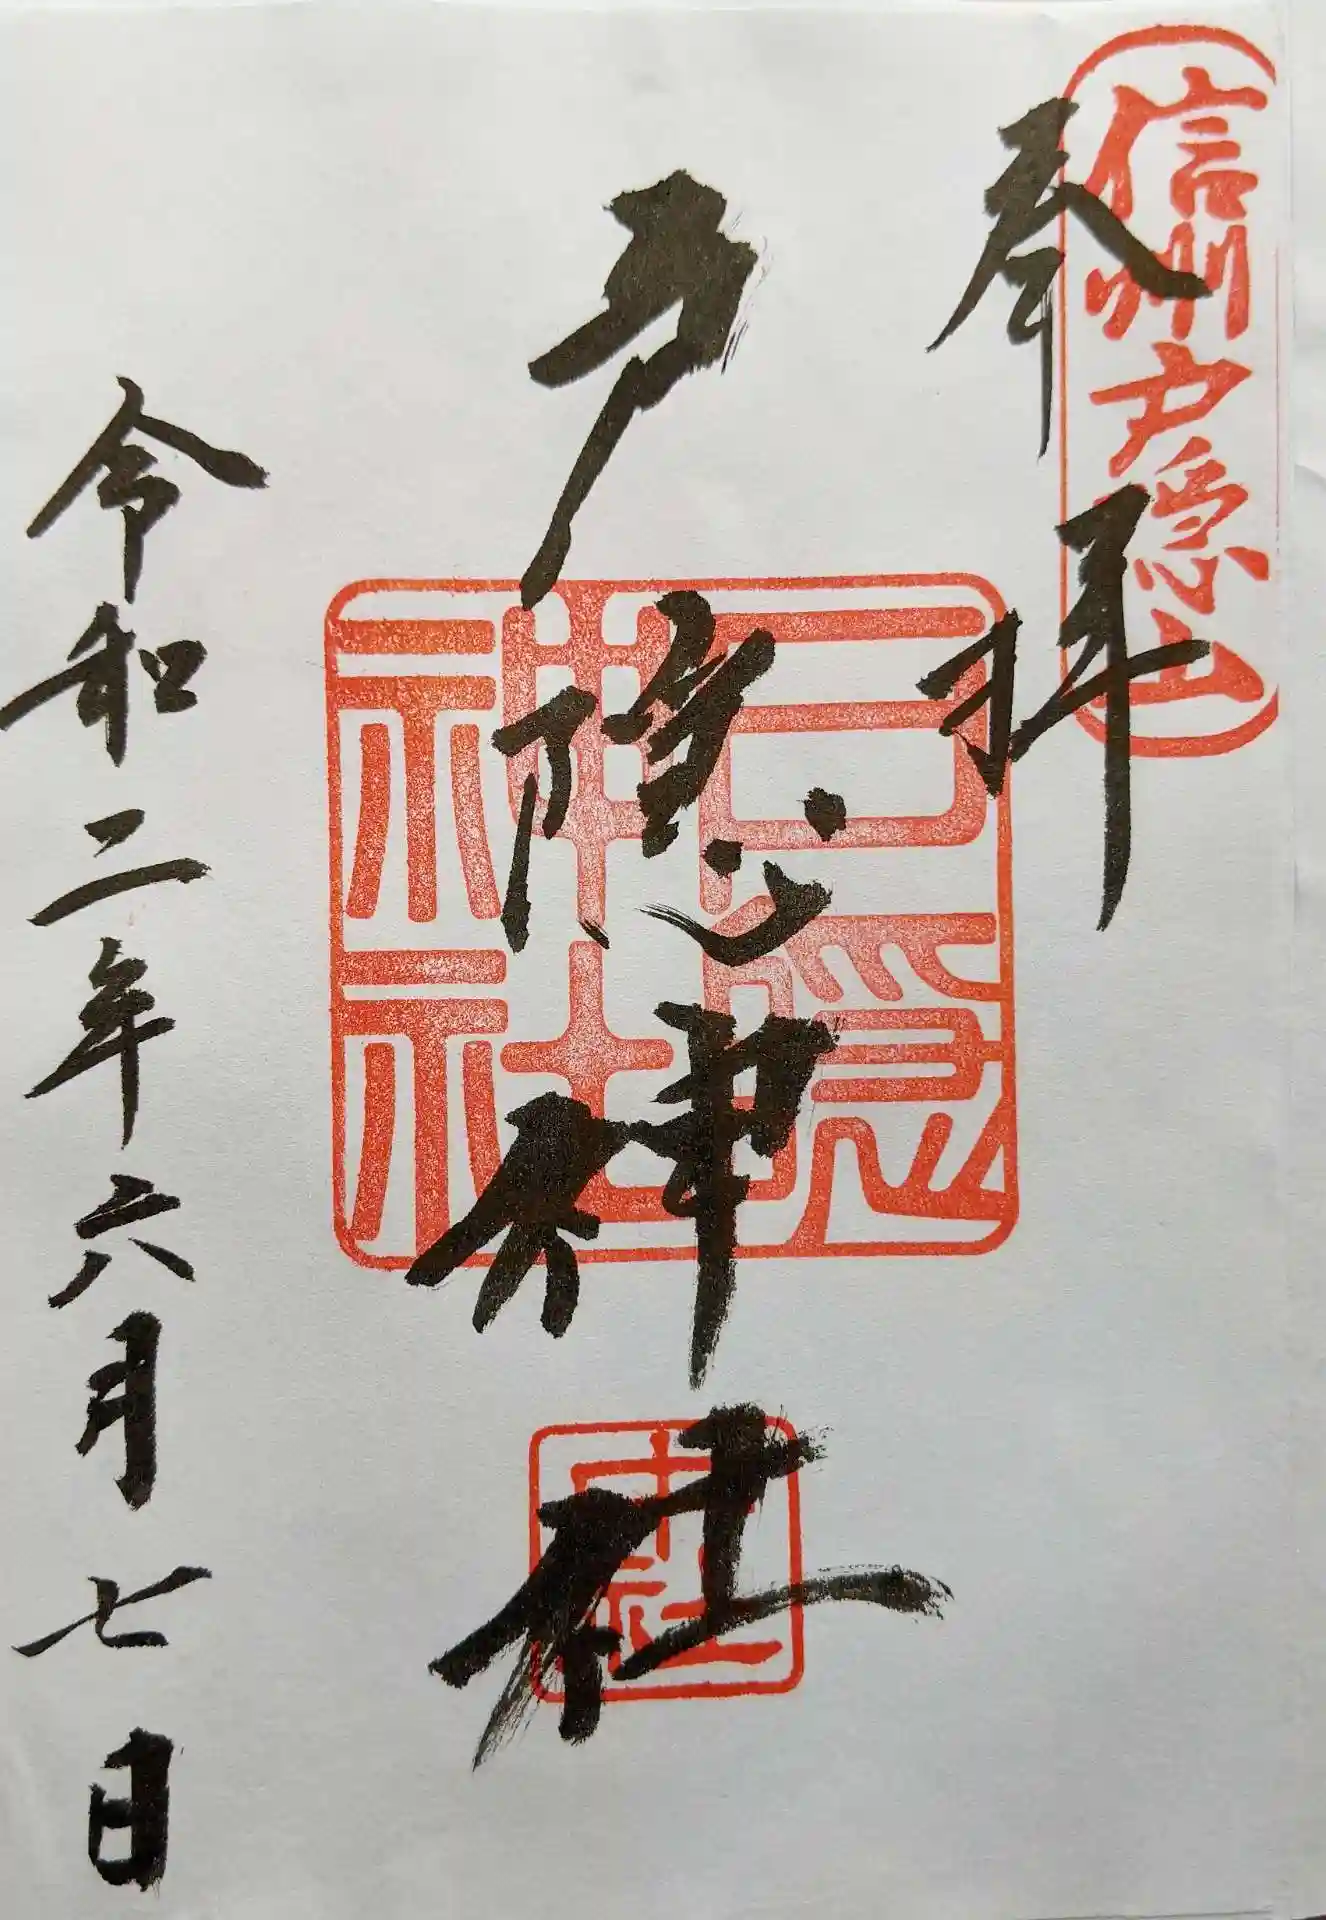 信州戸隠山
奉拝
戸隠神社
戸隠神社
中社
令和二年六月七日